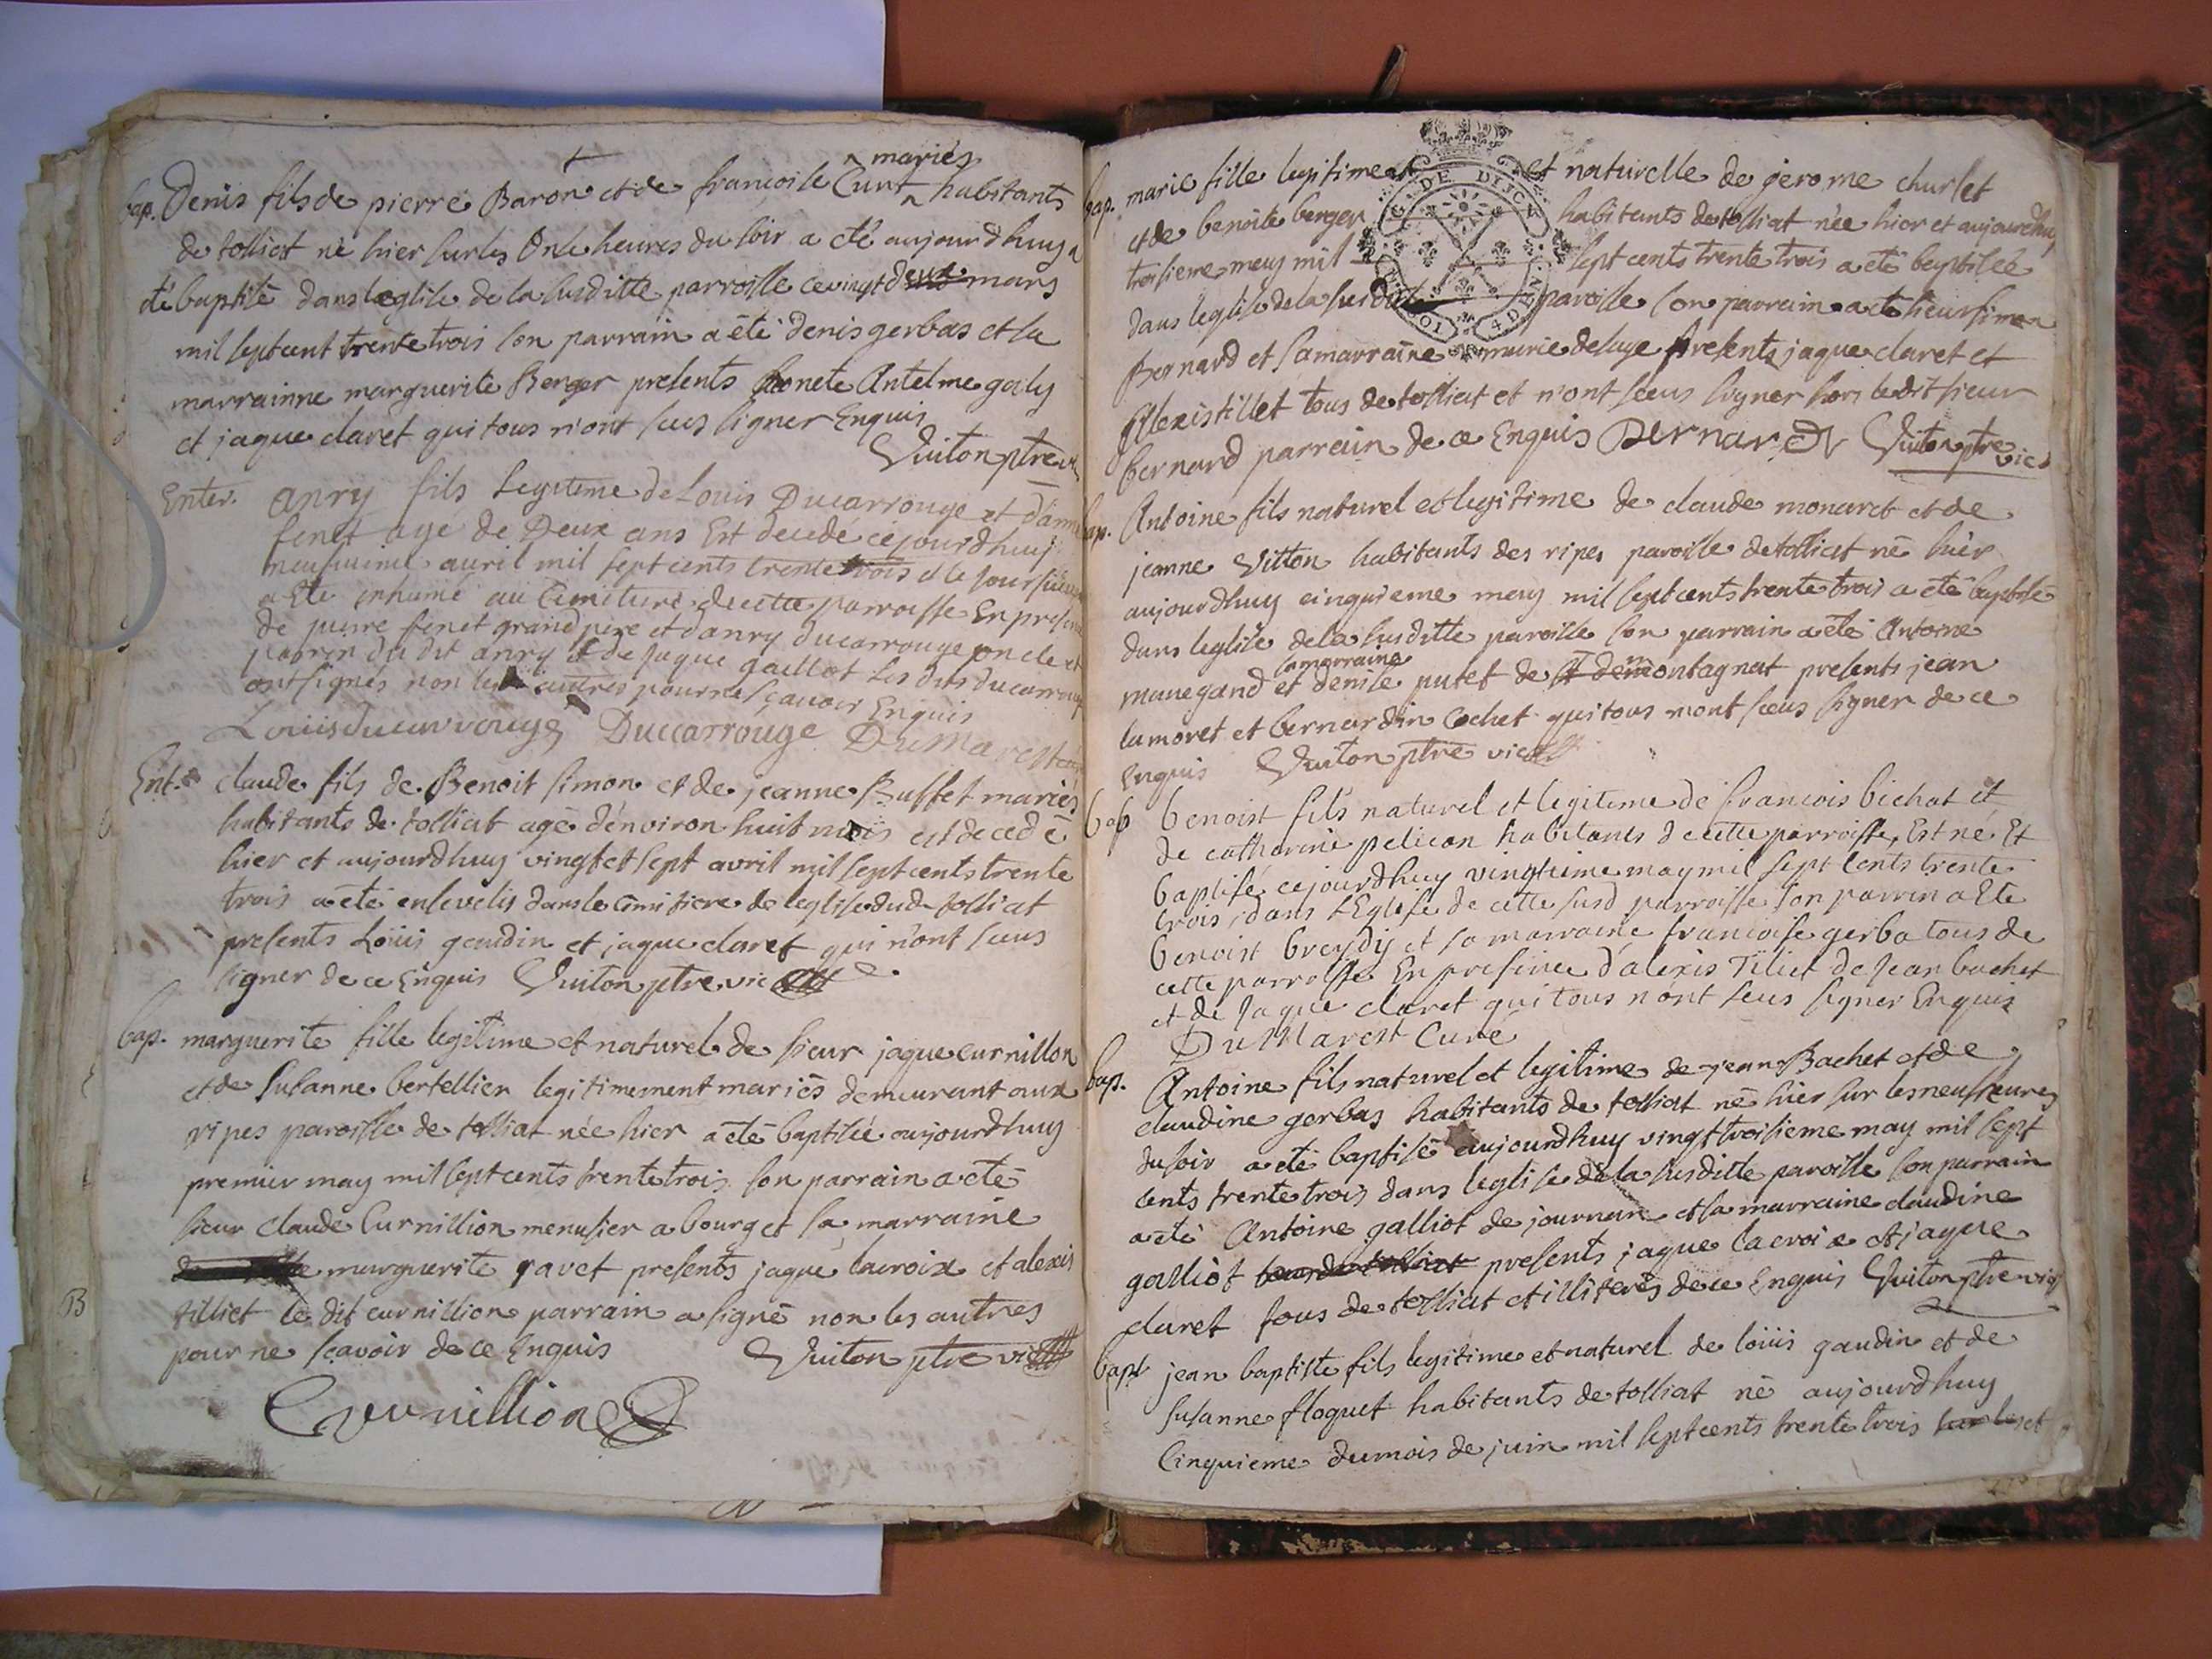 mariés
bap. Denis fils de pierre Baron et de francoise Cunt habitants
de tolliat né hier sur les Onse heures du soir a eté aujourdhuy a
été baptisé dans leglise de la susditte parroisse ce vingt deux mars
mil sept cent trente trois son parrain a été denis gerbas et sa
marrainne marguerite Berger presents honete Antelme galy
et jaque claret qui tous n'ont sceus signer Enquis
Vuiton ptre vic
Enter. anry fils Legitime de Louis Ducarrouge et d'anne
fenet agé de Deux ans Est decedé cejourdhuy
neufvieme auril mil sept cents trente trois et le jour suivant
a Eté inhumé au Cimitiere de cette parroisse En presence
de pierre fenet grand pere et d'anry ducarrouge oncle et
parrin du dit anry et de Jaque gaillot Les dits ducarrouge
ont signés non les autres pour ne scavoir Enquis
Louis ducarrouge Ducarrouge DuMarest curé
Ent. claude fils de Benoit simon et de jeanne Buffet mariés
habitants de tolliat agé d'environ huit mois est decedé
hier et aujourdhuy vingt et sept avril mil sept cents trente
trois a été ensevelis dans le cimitiere de leglise dud. tolliat
presents Loüis gaudin et jaque claret qui n'ont sceus
signer de ce Enquis Vuiton ptre vic
bap. marguerite fille legitime et naturel de sieur jaque curnillon
et de Susanne bertellier legitimement mariés demeurant aux
ripes paroisse de tolliat née hier a été baptisée aujourdhuy
premier may mil sept cents trente trois son parrain a eté
sieur claude Curnillion menusier a bourg et sa marraine
marguerite ravet presents jaque lacroix et alexis
tilliet le dit curnillion parrain a signé non les autres
pour ne scavoir de ce Enquis Vuiton ptre vic
Curnillion
B
bap. marie fille legitime et et naturelle de jerome churlet
et de benoite berger habitants de tolliat née hier et aujourdhuy
troisieme may mil sept cents trente trois a eté baptisée
dans leglise de la susditte paroisse son parrain a eté sieur simon
Bernard et sa marraine marie deluye presents jaque claret et
Alexis tillet tous de tolliat et n'ont sceus signer hors ledit sieur
bernard parrain de ce Enquis Bernard Vuiton ptre vic
bap. Antoine fils naturel et legitime de claude monaret et de
jeanne Vitton habitants des ripes paroisse de tolliat né hier
aujourdhuy cinquieme may mil sept cents trente trois a eté baptisé
dans leglise de la susditte paroisse son parrain a eté Antoine
sa marraine
manegand et denise putet de st de montagnat presents jean
lamoret et bernardin Cochet qui tous n'ont sceus signer de ce
Enquis Vuiton ptre vic
bap benoist fils naturel et legitime de francois bichat et
de catharine pelican habitants de cette parroisse, Est né Et
baptisé cejourdhuy vingtieme may mil sept cents trente
trois, dans LEglise de cette susd parroisse son parrin a Eté
benoist breydy et sa marraine francoise gerba tous de
cette parroisse En presence d'alexis Tiliet de Jean bachet
et de Jaque claret qui tous n'ont sceus signer Enquis
DuMarest Curé
bap. Antoine fils naturel et legitime de jean Bachet et de
claudine gerbas habitants de tolliat né hier sur les neuf heures
du soir a eté baptisé aujourdhuy vingt troisieme may mil sept
cents trente trois dans leglise de la susditte paroisse son parrain
a eté Antoine galliot de journan et sa marraine claudine
galliot tous de tolliat presents jaque lacroix et jaque
claret tous de tolliat et illiterés de ce Enquis Vuiton ptre vic
bapt jean baptiste fils legitime et naturel de loüis gaudin et de
susanne floquet habitants de tolliat né aujourdhuy
Cinquieme du mois de juin mil sept cents trente trois sur les et